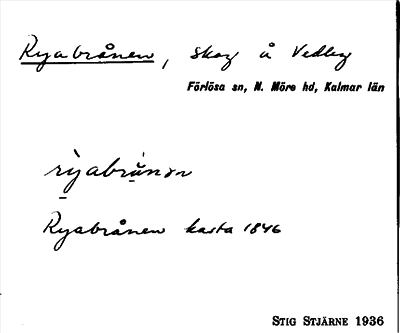 Ryabrånen, skog å Vedby
Förlösa sn, N. Möre hd, Kalmar län
rỳabrùnǝn
Ryabrånen karta 1846
STIG STJÄRNE 1936